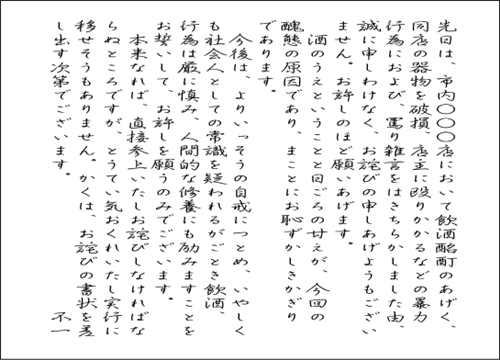 先日は、市内〇〇〇店において飲酒酩酊のあげく、
同店の器物を破損、店主に殴りかかるなどの暴力
行為におよび、罵り雑言をはきちらかしました由、
誠に申しわけなく、お詫びの申しあげようもござい
ません。お許しのほど願いあげます。
酒のうえということと日ごろの甘えが、今回の
醜態の原因であり、まことにお恥ずかしきかぎり
であります。
今後は、よりいっそうの自戒につとめ、いやしく
も社会人としての常識を疑われるがごとき飲酒、
行為は厳に慎み、人間的な修養にも励みますことを
お誓いして、お許しを願うのみでございます。
本来なれば、直接参上いたしお詫びしなければな
らぬところですが、とうてい気おくれいたし実行に
移せそうもありません。かくは、お詫びの書状を差
し出す次第でございます。
不一